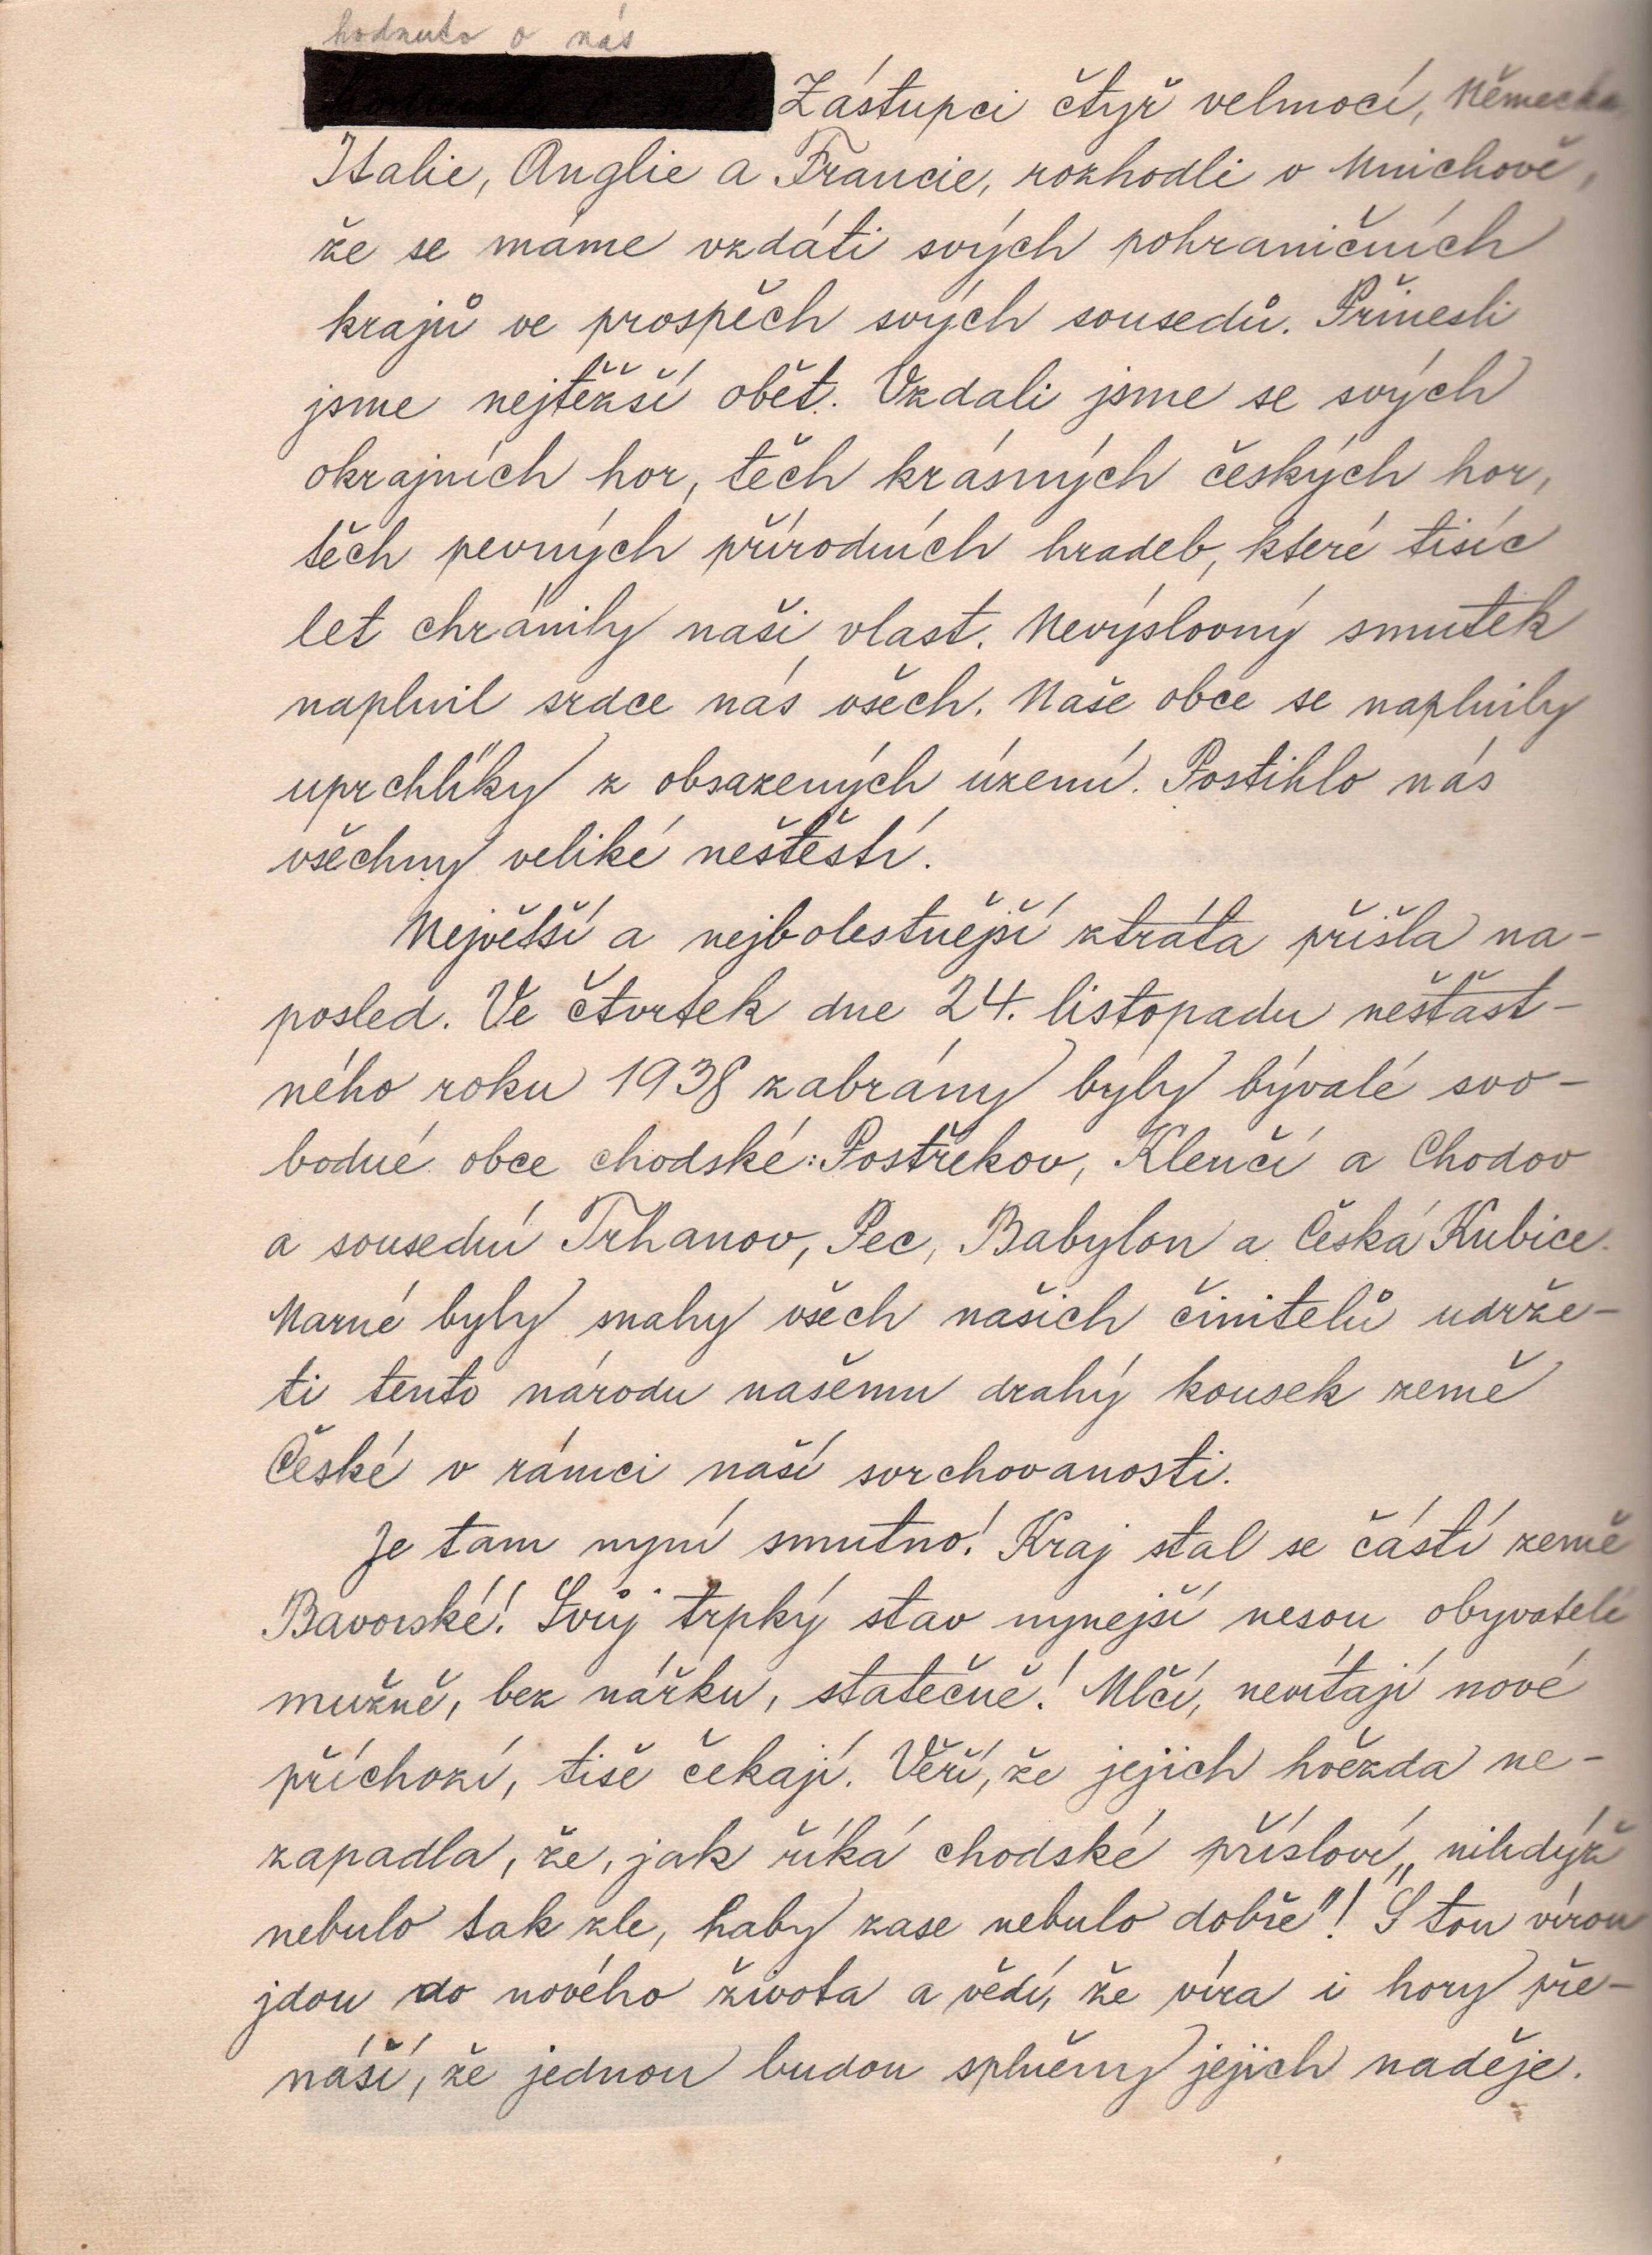 hodnuto o nás
Zástupci čtyř velmocí, Německa,
Italie, Anglie a Francie, rozhodli v Mnichově,
že se máme vzdáti svých pohraničních
krajů ve prospěch svých sousedů. Přinesli
jsme nejtěžší oběť. Vzdali jsme se svých
okrajních hor, těch krásných českých hor,
těch pevných přírodních hradeb, které tisíc
let chránily naši vlast. Nevýslovný smutek
naplnil srdce nás všech. Naše obce se naplnily
uprchlíky z obsazených území. Postihlo nás
všechny veliké neštěstí.
Největší a nejbolestnější ztráta přišla na-
posled. Ve čtvrtek dne 24. listopadu nešťast-
ného roku 1938 zabrány byly bývalé svo-
bodné obce chodské: Postřekov, Klenčí a Chodov
a sousední Trhanov, Pec, Babylon a Česká Kubice.
Marné byly snahy všech našich činitelů udrže-
ti tento národu našemu drahý kousek země
České v rámci naší svrchovanosti.
Je tam nyní smutno! Kraj stal se částí země
Bavorské! Svůj trpký stav nynejší nesou obyvatelé
mužně, bez nářku, statečně! Mlčí, nevítají nové
příchozí, tiše čekají. Věří, že jejich hvězda ne-
zapadla, že, jak říká chodské přísloví „nihdýž
nebulo tak zle, haby zase nebulo dobře"! S tou vírou
jdou do nového života a vědí, že víra i hory pře-
náší, že jednou budou splněny jejich naděje.